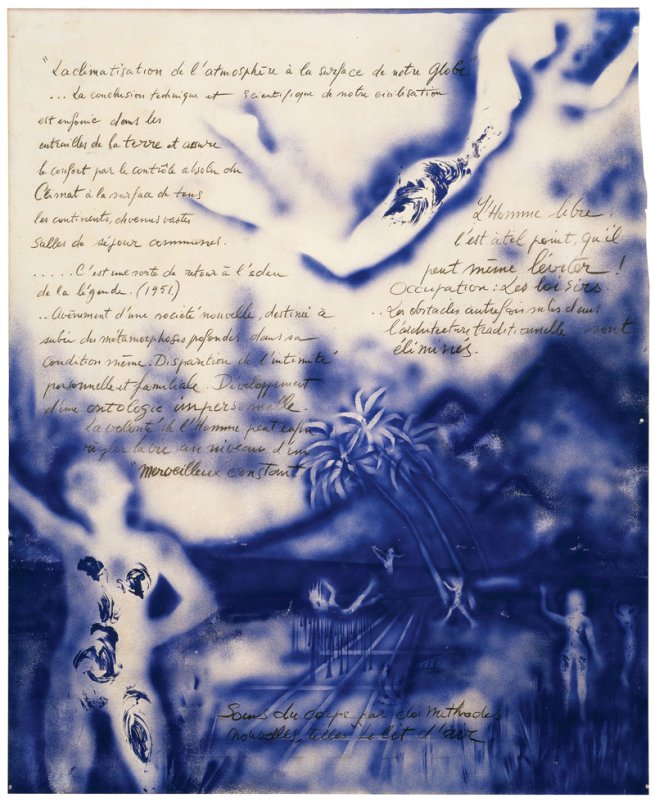 "La climatisation de l'atmosphère à la surface de notre Globe"
... La conclusion technique et scientifique de notre civilisation
est enfouie dans les
entrailles de la terre et assure
le confort par le contrôle absolu du
Climat à la surface de tous
les continents, devenus vastes
salles de séjour communes.
..... C'est une sorte de retour à l'eden
de la légende. (1951)
.. Avènement d'une société nouvelle, destinée à
subir des métamorphoses profondes dans sa
condition même. Disparition de l'intimité
personnelle et familiale. Développement
d'une ontologie impersonnelle.
La volonté de l'Homme peut enfin
régler la vie au niveau d'un
"merveilleux constant
L'Homme libre,
l'est à tel point, qu'il
peut même léviter !
Occupation : Les loisirs
.. Les obstacles autrefois subis dans
l'architecture traditionnelle sont
éliminés.
Soins du corps par des méthodes
nouvelles, telles le lit d'air.